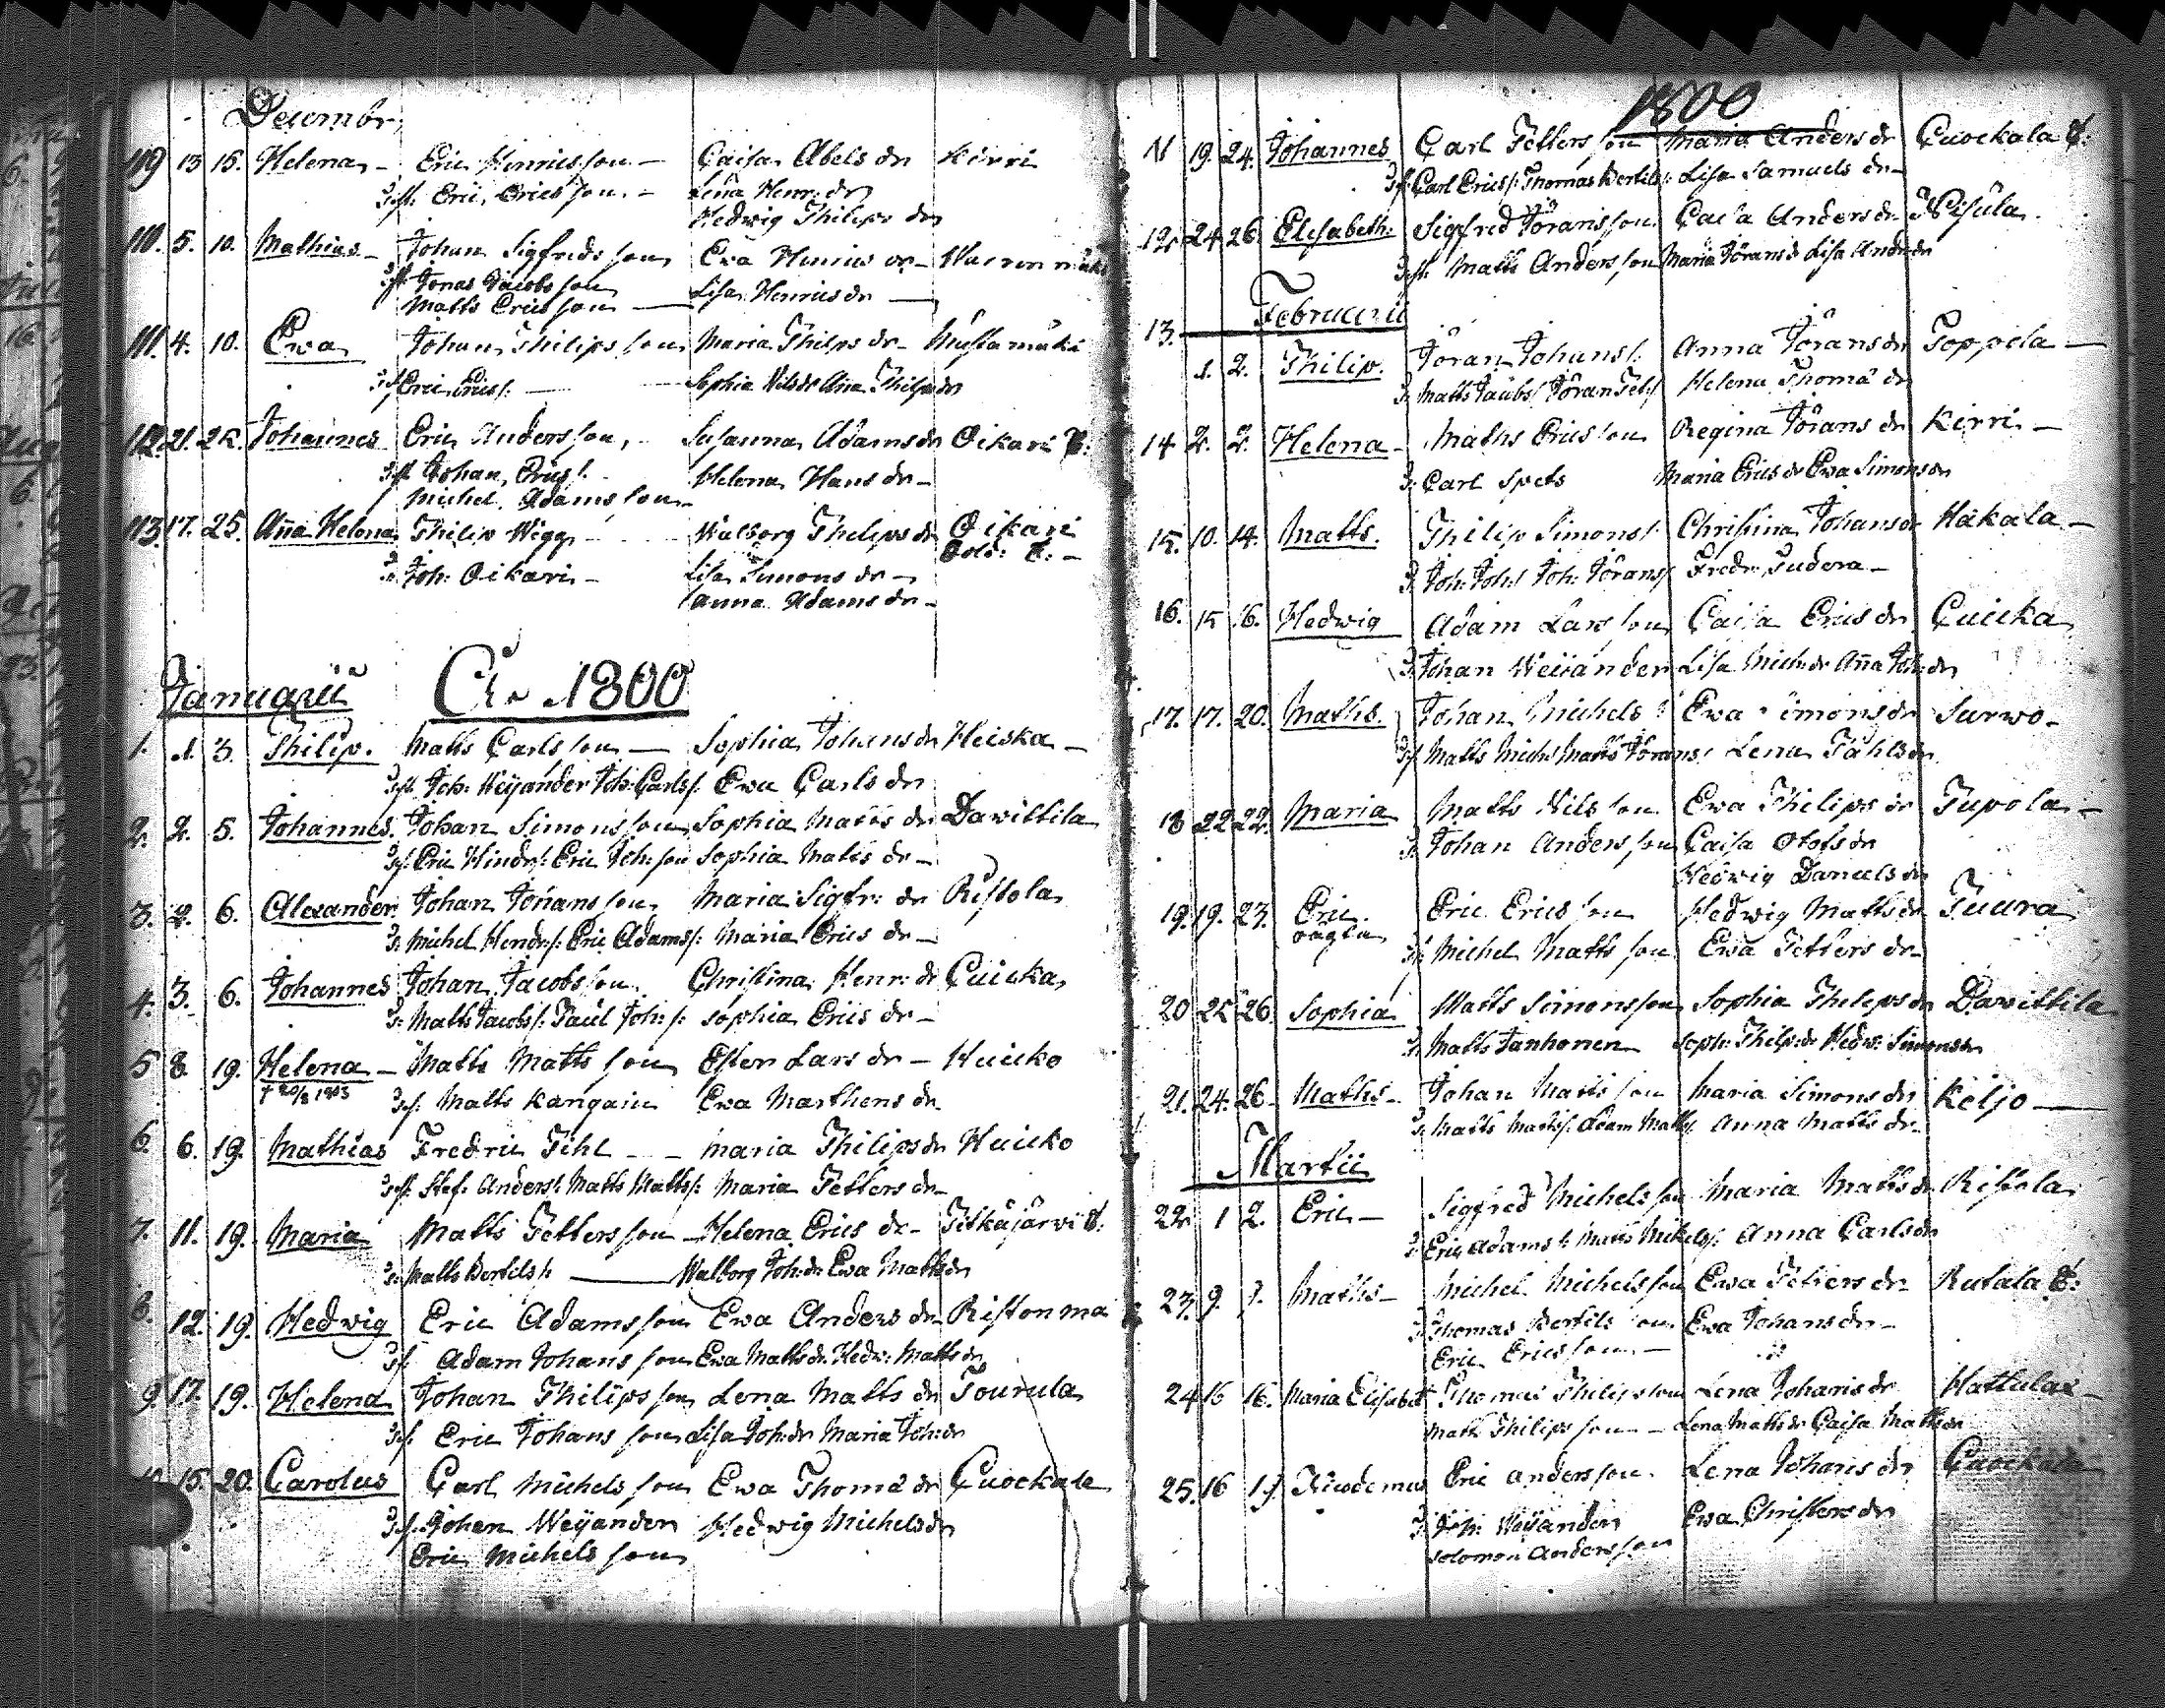 Decembr;
119 13 15. Helena - Eric Henricsson - Caisa Abels dr Kirri
Eric Ericsson. - Lena Henr: dr
Hedwig Philips dr
110. 5. 10. Mathias - Johan Sigfredsson Eva Henrics dr -
Jonas Jacobsson Lisa Henrics dr
Matts Ericsson
111. 4. 10. Ewa Johan Philipsson Maria Philps dr - Mustamäki
Eric Erics/: Sophia Nils dr Aña Philps dr
112. 21. 22. Johannes Eric Andersson, Susanna Adams dr Oikari T:
Johan Erics/: Helena Hans dr -
Michel Adamsson
113. 17. 25. Aña Helena Philip Wigg - Walborg Philips dr Oikari
Sold: T: -
Joh: Oikari - Lisa Simons dr -
Anna Adams dr -
Januarii Ao 1800
1. 1. 3. Philip. Matts Carlsson - Sophia Johans dr Heiska -
Joh: Weijander Joh: Carls/: Ewa Carls dr
2. 2. 5. Johannes. Johan Simonsson Sophia Matts dr Dawittila
Eric Hindr/: Eric Joh:son Sophia Matts dr -
3. 2. 6. Alexander. Johan Jöransson Maria Sigfr: dr Ristola
Michel Hendr/: Eric Adams/: Maria Erics dr -
4. 3. 6. Johannes Johan Jacobsson. Christina Henr: dr Cuicka
Matts Jacobs/: Paul Joh:/: Sophia Erics dr -
5 8. 19. Helena - Matts Mattsson Ester Lars dr - Huicko
† 20/8 1803 Matts Kangain Ewa Marthens dr
6. 6. 19. Mathias Fredric Pihl - - Maria Philips dr Huicko
Stef: Anders/: Matts Matts/: Maria Petters dr
7. 11. 19. Maria Matts Pettersson - Helena Erics dr - Pitkäjärvi T:
Matts Bertils/: Walborg Joh: dr Ewa Matts dr
8. 12. 19. Hedwig Eric Adamsson Ewa Anders dr Ristonma
Adam Johansson Ewa Matts dr Hedw: Matts dr
9. 17. 19. Helena Johan Philipsson Lena Matts dr Pourula
Eric Johansson Lisa Joh: dr Maria Joh: dr
15. 20. Carolus Carl Michelsson Ewa Thoma dr Cuockala
Johan Weijander Hedwig Michels dr
Eric Michelsson
1800
11 19. 24. Johannes Carl Petterson Maria Anders dr Cuockala T:
Carl Erics/: Thomas Bertils/: Lisa Samuels dr -
12. 24 26. Elisabeth: Sigfred Jöransson Caisa Anders dr
Matts Andersson Maria Jörans dr Lisa Andr: dr
Februarii
13.
1. 2. Philip. Jöran Johans/: Anna Jörans dr Poppela -
Matts Jacobs/ Jöran Pet:/ Helena Thoma dr
14 2. 2. Helena - Maths Ericsson Regina Jörans dr Kirri -
Carl Spets Maria Erics dr Ewa Simons dr
15. 10. 14. Matts. Philip Simons/: Christina Johans dr Hakala -
Joh: Joh:/ Joh: Jörans/ Fredr:
16. 15 16. Hedwig Adam Larsson Caisa Erics dr Cuicka
Johan Weijander Lisa Mich: dr Aña Joh: dr
17. 17. 20. Maths. Johan Michels/: Ewa Simons dr Surwo -
Matts Mich:/ Matts Jörans/ Lena Påhls dr
18 22 22. Maria Matts Nilsson Ewa Philips dr Pupola -
Johan Andersson Caisa Olofs dr
Hedwig Daniels dr
19. 19. 23. Eric. Eric Ericsson Hedwig Matts dr Puura
oägta Michel Mattsson Ewa Petters dr
20 25 26. Sophia Matts Simonsson Sophia Philips dr Dawittila
Matts Tanhonen Soph: Philp: dr Hedw: Simons dr
21. 24. 26. Maths - Johan Mattsson Maria Simons dr Keljo
Matts Matts/: Adam Matts/: Anna Matts dr -
Martii
22. 1 2. Eric - Sigfred Michelsson Maria Matts dr Ristola
Eric Adams/: Matts Mikels/: Anna Carls dr
23. 9. Maths - Michel Michelsson Ewa Petters dr Rutala T:
Thomas Bertilsson Ewa Johans dr -
Eric Ericsson -
24 16. Maria Elisabet Thomas Philipsson Lena Johans dr Hattulax -
Math Philipsson - Lena Matts dr Caisa Matts dr
25. 16 Nicodemus Eric Andersson. Lena Johans dr Cuockala
Joh: Weijander Ewa Christers dr
Solomon Andersson